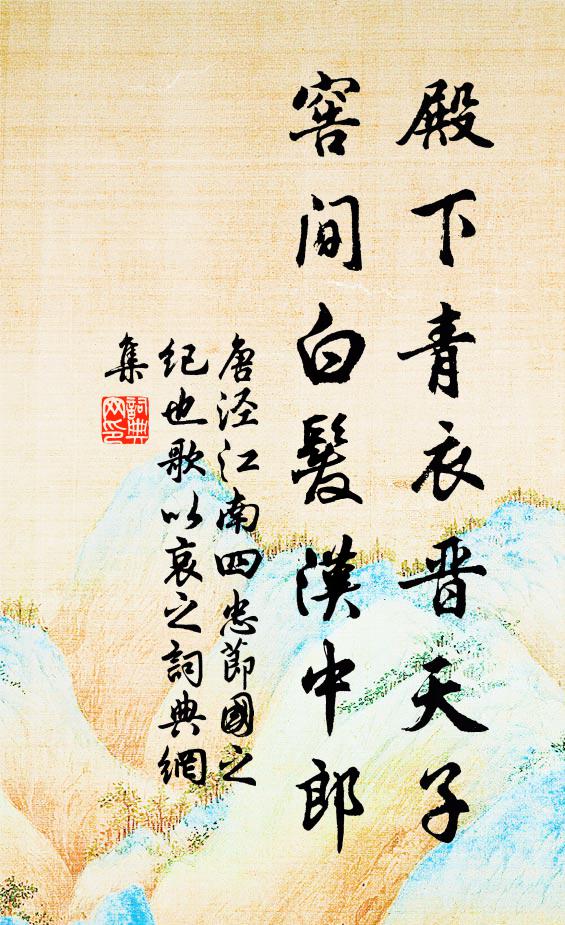 殿下青衣晋天子
窖间白髮漢中郎
唐涇江南四忠節國之
纪也歌以哀之詞典網
集
詞典
网印